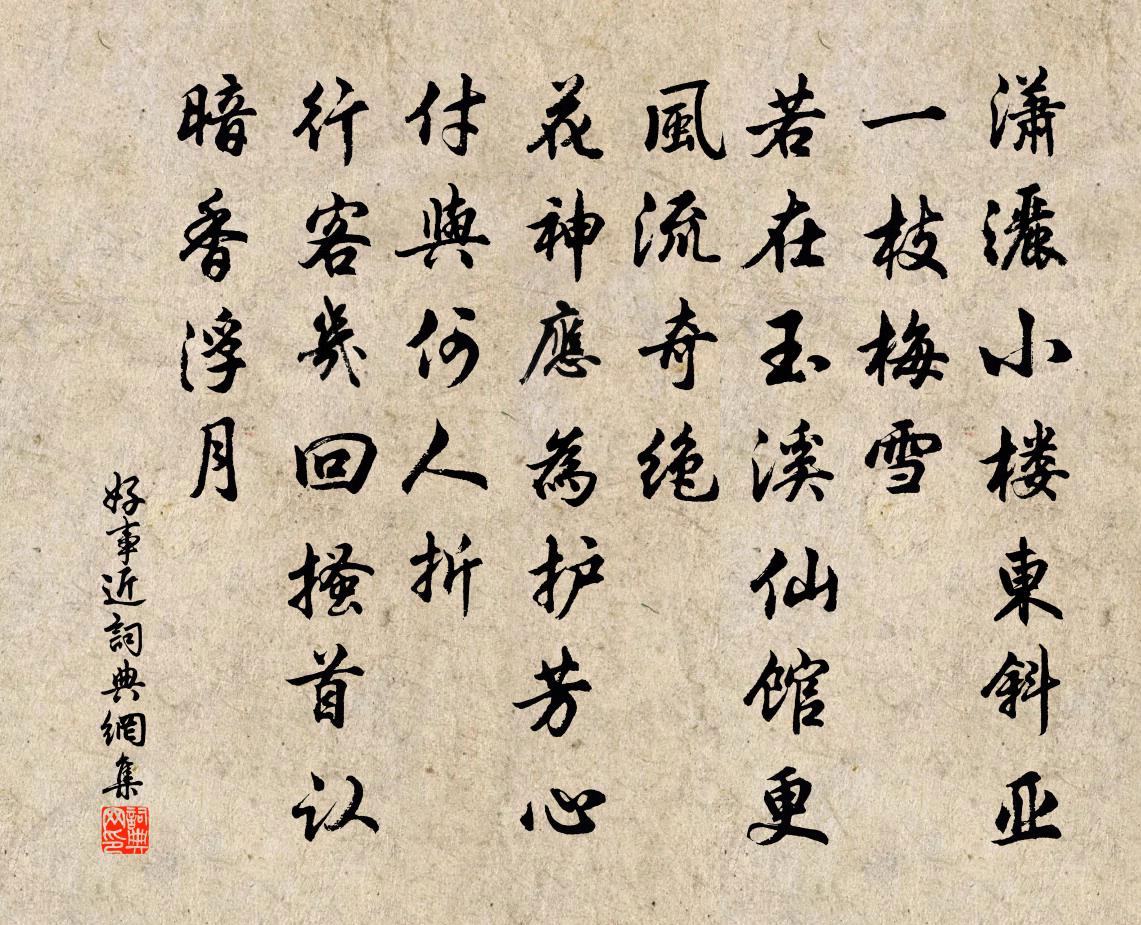 潇灑小楼東斜亚
一枝梅雪
若在玉溪仙館更
風流奇绝
花神應為护芳心
付與何人折
行客幾回搔首认
暗香浮月
好事近詞典網集
詞典网印